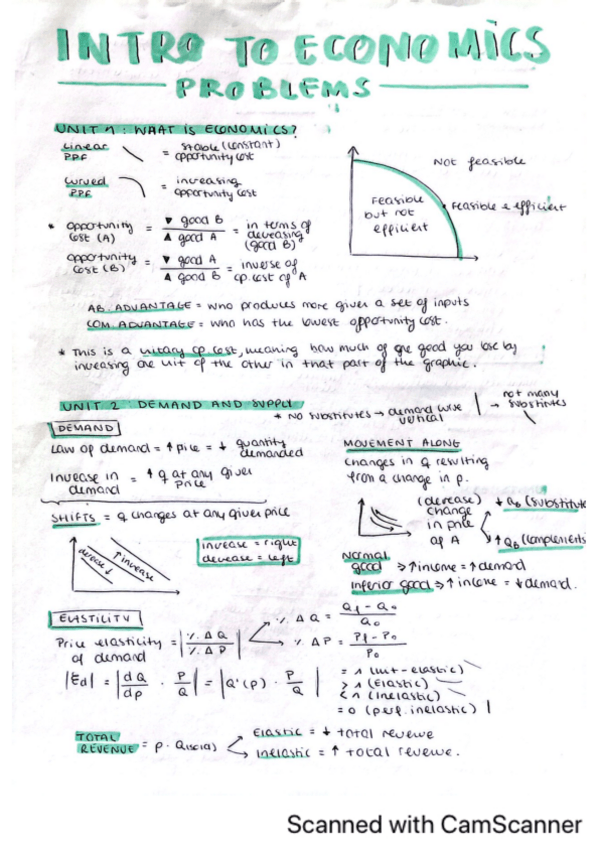 INTRO TO ECONOMICS
PROBLEMS
UNIT 1: WHAT IS ECONOMICS?
Linear PPF = stable (constant) opportunity cost
Curved PPF = increasing opportunity cost
Not feasible
Feasible but not efficient
Feasible & efficient
* opportunity cost (A) = ▼ good B / ▲ good A = in terms of decreasing (good B)
opportunity cost (B) = ▼ good A / ▲ good B = inverse of op. cost of A
AB. ADVANTAGE = who produces more given a set of inputs
COM. ADVANTAGE = who has the lowest opportunity cost.
* This is a unitary op cost, meaning how much of one good you lose by
increasing one unit of the other in that part of the graphic.
UNIT 2: DEMAND AND SUPPLY
* NO substitutes → demand curve vertical | → not many substitutes \
DEMAND
Law of demand = ↑ price = ↓ quantity demanded
Increase in demand = ↑ q at any given price
SHIFTS = Q changes at any given price
decrease ↓
↑ increase
increase = right
decrease = left
MOVEMENT ALONG
changes in Q resulting
from a change in p.
(decrease) change in price of A
↓ QB (substitute
↑ QB (complements
Normal good ⇒ ↑ income = ↑ demand
Inferior good ⇒ ↑ income = ↓ demand.
ELASTILITY
Price elasticity of demand = | % Δ Q / % Δ P |
% Δ Q = Q1 - Q0 / Q0
% Δ P = P1 - P0 / P0
|Ed| = | dQ / dp · P / Q | = | Q'(p) · P / Q |
= 1 (unit-elastic)
> 1 (elastic)
< 1 (inelastic)
= 0 (perf. inelastic) |
TOTAL REVENUE = p · Q
Elastic = ↓ total revenue
Inelastic = ↑ total revenue.
Scanned with CamScanner